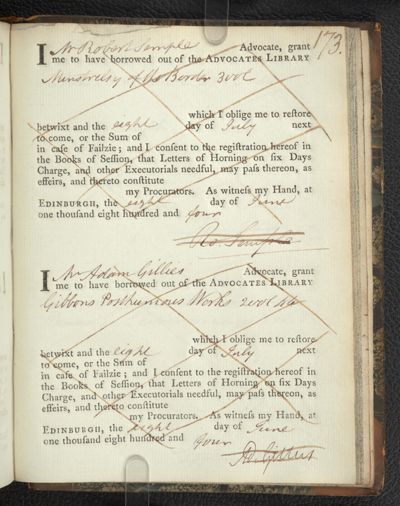 173.
I Mr Robert Semple Advocate, grant
me to have borrowed out of the ADVOCATES LIBRARY
Minstrelsy of the Border 3 vol
which I oblige me to reſtore
betwixt and the eight day of July next
to come, or the Sum of
in caſe of Failzie; and I conſent to the regiſtration hereof in
the Books of Seſſion, that Letters of Horning on ſix Days
Charge, and other Executorials needful, may paſs thereon, as
effeirs, and thereto conſtitute
my Procurators. As witneſs my Hand, at
EDINBURGH, the eight day of June
one thouſand eight hundred and four
Ro. Semple
I Mr Adam Gillies Advocate, grant
me to have borrowed out of the ADVOCATES LIBRARY
Gibbons Posthumous Works 2 vol 4to
which I oblige me to reſtore
betwixt and the eight day of July next
to come, or the Sum of
in caſe of Failzie; and I conſent to the regiſtration hereof in
the Books of Seſſion, that Letters of Horning on ſix Days
Charge, and other Executorials needful, may paſs thereon, as
effeirs, and thereto conſtitute
my Procurators. As witneſs my Hand, at
EDINBURGH, the eight day of June
one thouſand eight hundred and four
Ad. Gillies